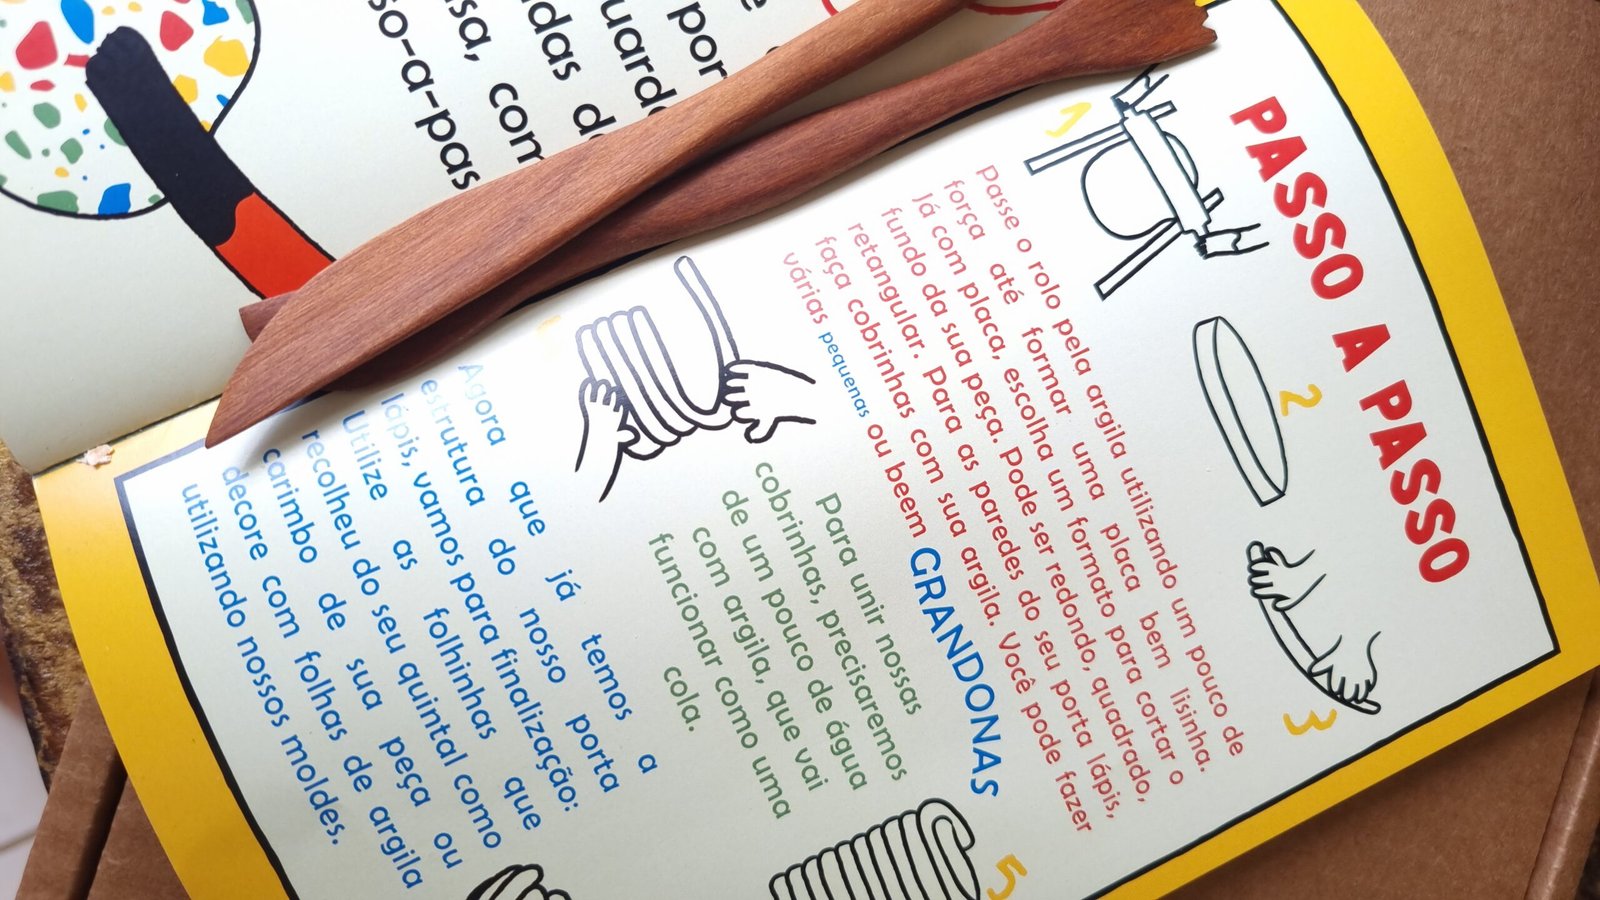 PASSO A PASSO
1
2
3
Passe o rolo pela argila utilizando um pouco de
força até formar uma placa bem lisinha.
Já com placa, escolha um formato para cortar o
fundo da sua peça. Pode ser redondo, quadrado,
retangular. Para as paredes do seu porta lápis,
faça cobrinhas com sua argila. Você pode fazer
várias pequenas ou beem GRANDONAS
5
Para unir nossas
cobrinhas, precisaremos
de um pouco de água
com argila, que vai
funcionar como uma
cola.
Agora que já temos a
estrutura do nosso porta
lápis, vamos para finalização:
Utilize as folhinhas que
recolheu do seu quintal como
carimbo de sua peça ou
decore com folhas de argila
utilizando nossos moldes.
por
sa, com
so-a-pas